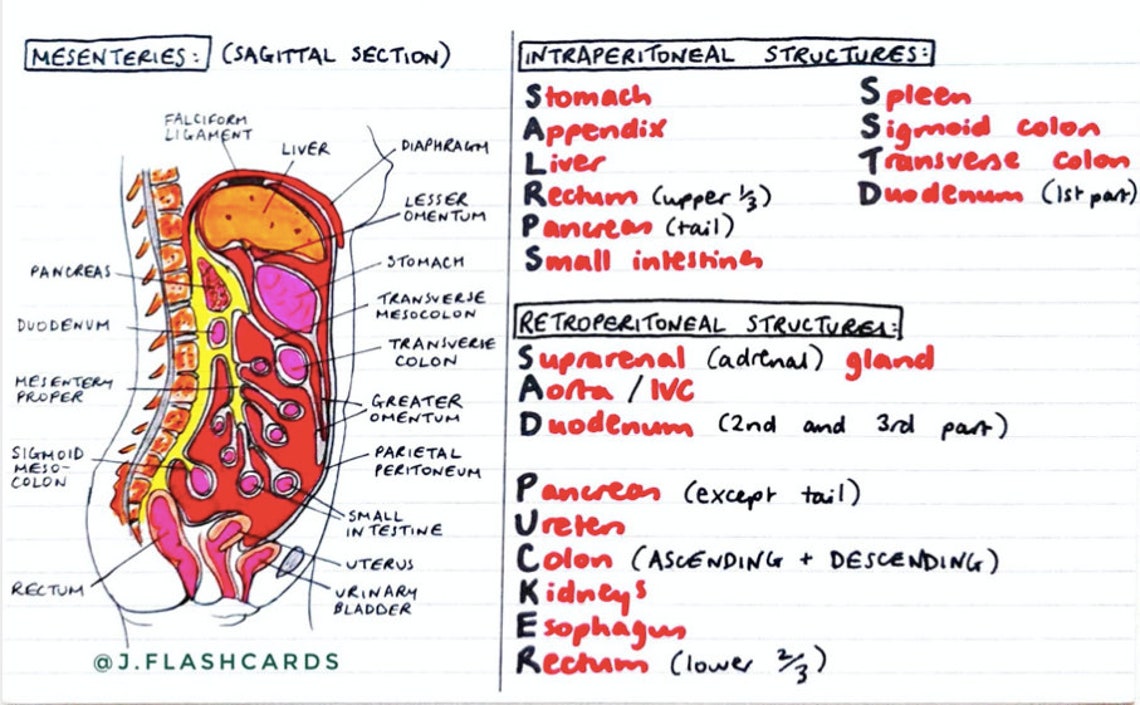 MESENTERIES: (SAGITTAL SECTION)
FALCIFORM
LIGAMENT
LIVER
DIAPHRAGM
LESSER
OMENTUM
PANCREAS
STOMACH
TRANSVERSE
MESOCOLON
DUODENUM
TRANSVERSE
COLON
MESENTERY
PROPER
GREATER
OMENTUM
SIGMOID
MESO-
COLON
PARIETAL
PERITONEUM
SMALL
INTESTINE
UTERUS
RECTUM
URINARY
BLADDER
@J.FLASHCARDS
INTRAPERITONEAL STRUCTURES:
Stomach
Appendix
Liver
Rectum (upper 1/3)
Pancreas (tail)
Small intestines
Spleen
Sigmoid colon
Transverse colon
Duodenum (1st part)
RETROPERITONEAL STRUCTURES:
Suprarenal (adrenal) gland
Aorta / IVC
Duodenum (2nd and 3rd part)
Pancreas (except tail)
Ureters
Colon (ASCENDING + DESCENDING)
Kidneys
Esophagus
Rectum (lower 2/3)